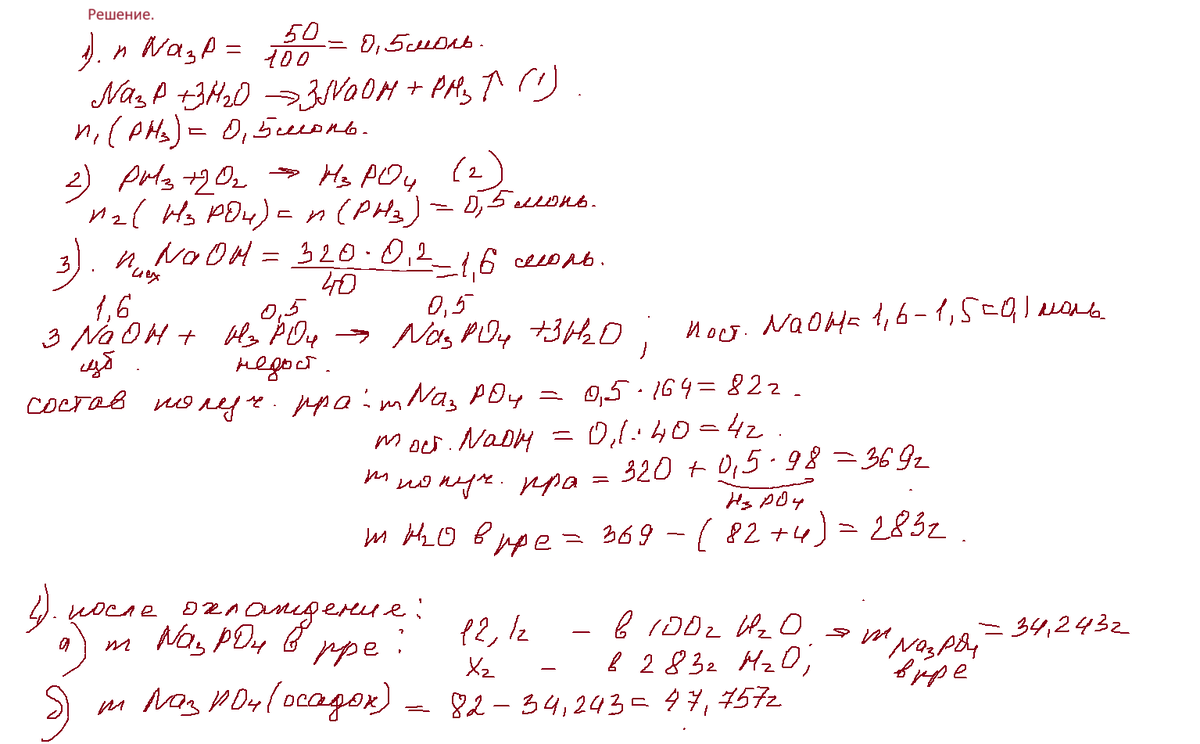 Решение.
1). n Na₃P = 50/100 = 0,5 моль.
Na₃P + 3H₂O → 3NaOH + PH₃ ↑ (1) .
n₁ (PH₃) = 0,5 моль.
2) PH₃ + 2O₂ → H₃PO₄ (2)
n₂ (H₃PO₄) = n (PH₃) = 0,5 моль.
3). n исх NaOH = 320 · 0,2/40 = 1,6 моль.
1,6 0,5 0,5
3 NaOH + H₃PO₄ → Na₃PO₄ + 3H₂O ; n ост. NaOH = 1,6 - 1,5 = 0,1 моль
изб. недост.
состав получ. рра: m Na₃PO₄ = 0,5 · 164 = 82г.
m ост. NaOH = 0,1 · 40 = 4г.
m получ. рра = 320 + 0,5 · 98 = 369г
H₃PO₄
m H₂O в рре = 369 - (82 + 4) = 283г.
4). после охлаждение:
а) m Na₃PO₄ в рре: 12,1г - в 100г H₂O → m Na₃PO₄ в рре = 34,243г
Xг - в 283г H₂O;
б) m Na₃PO₄ (осадок) = 82 - 34,243 = 47,757г